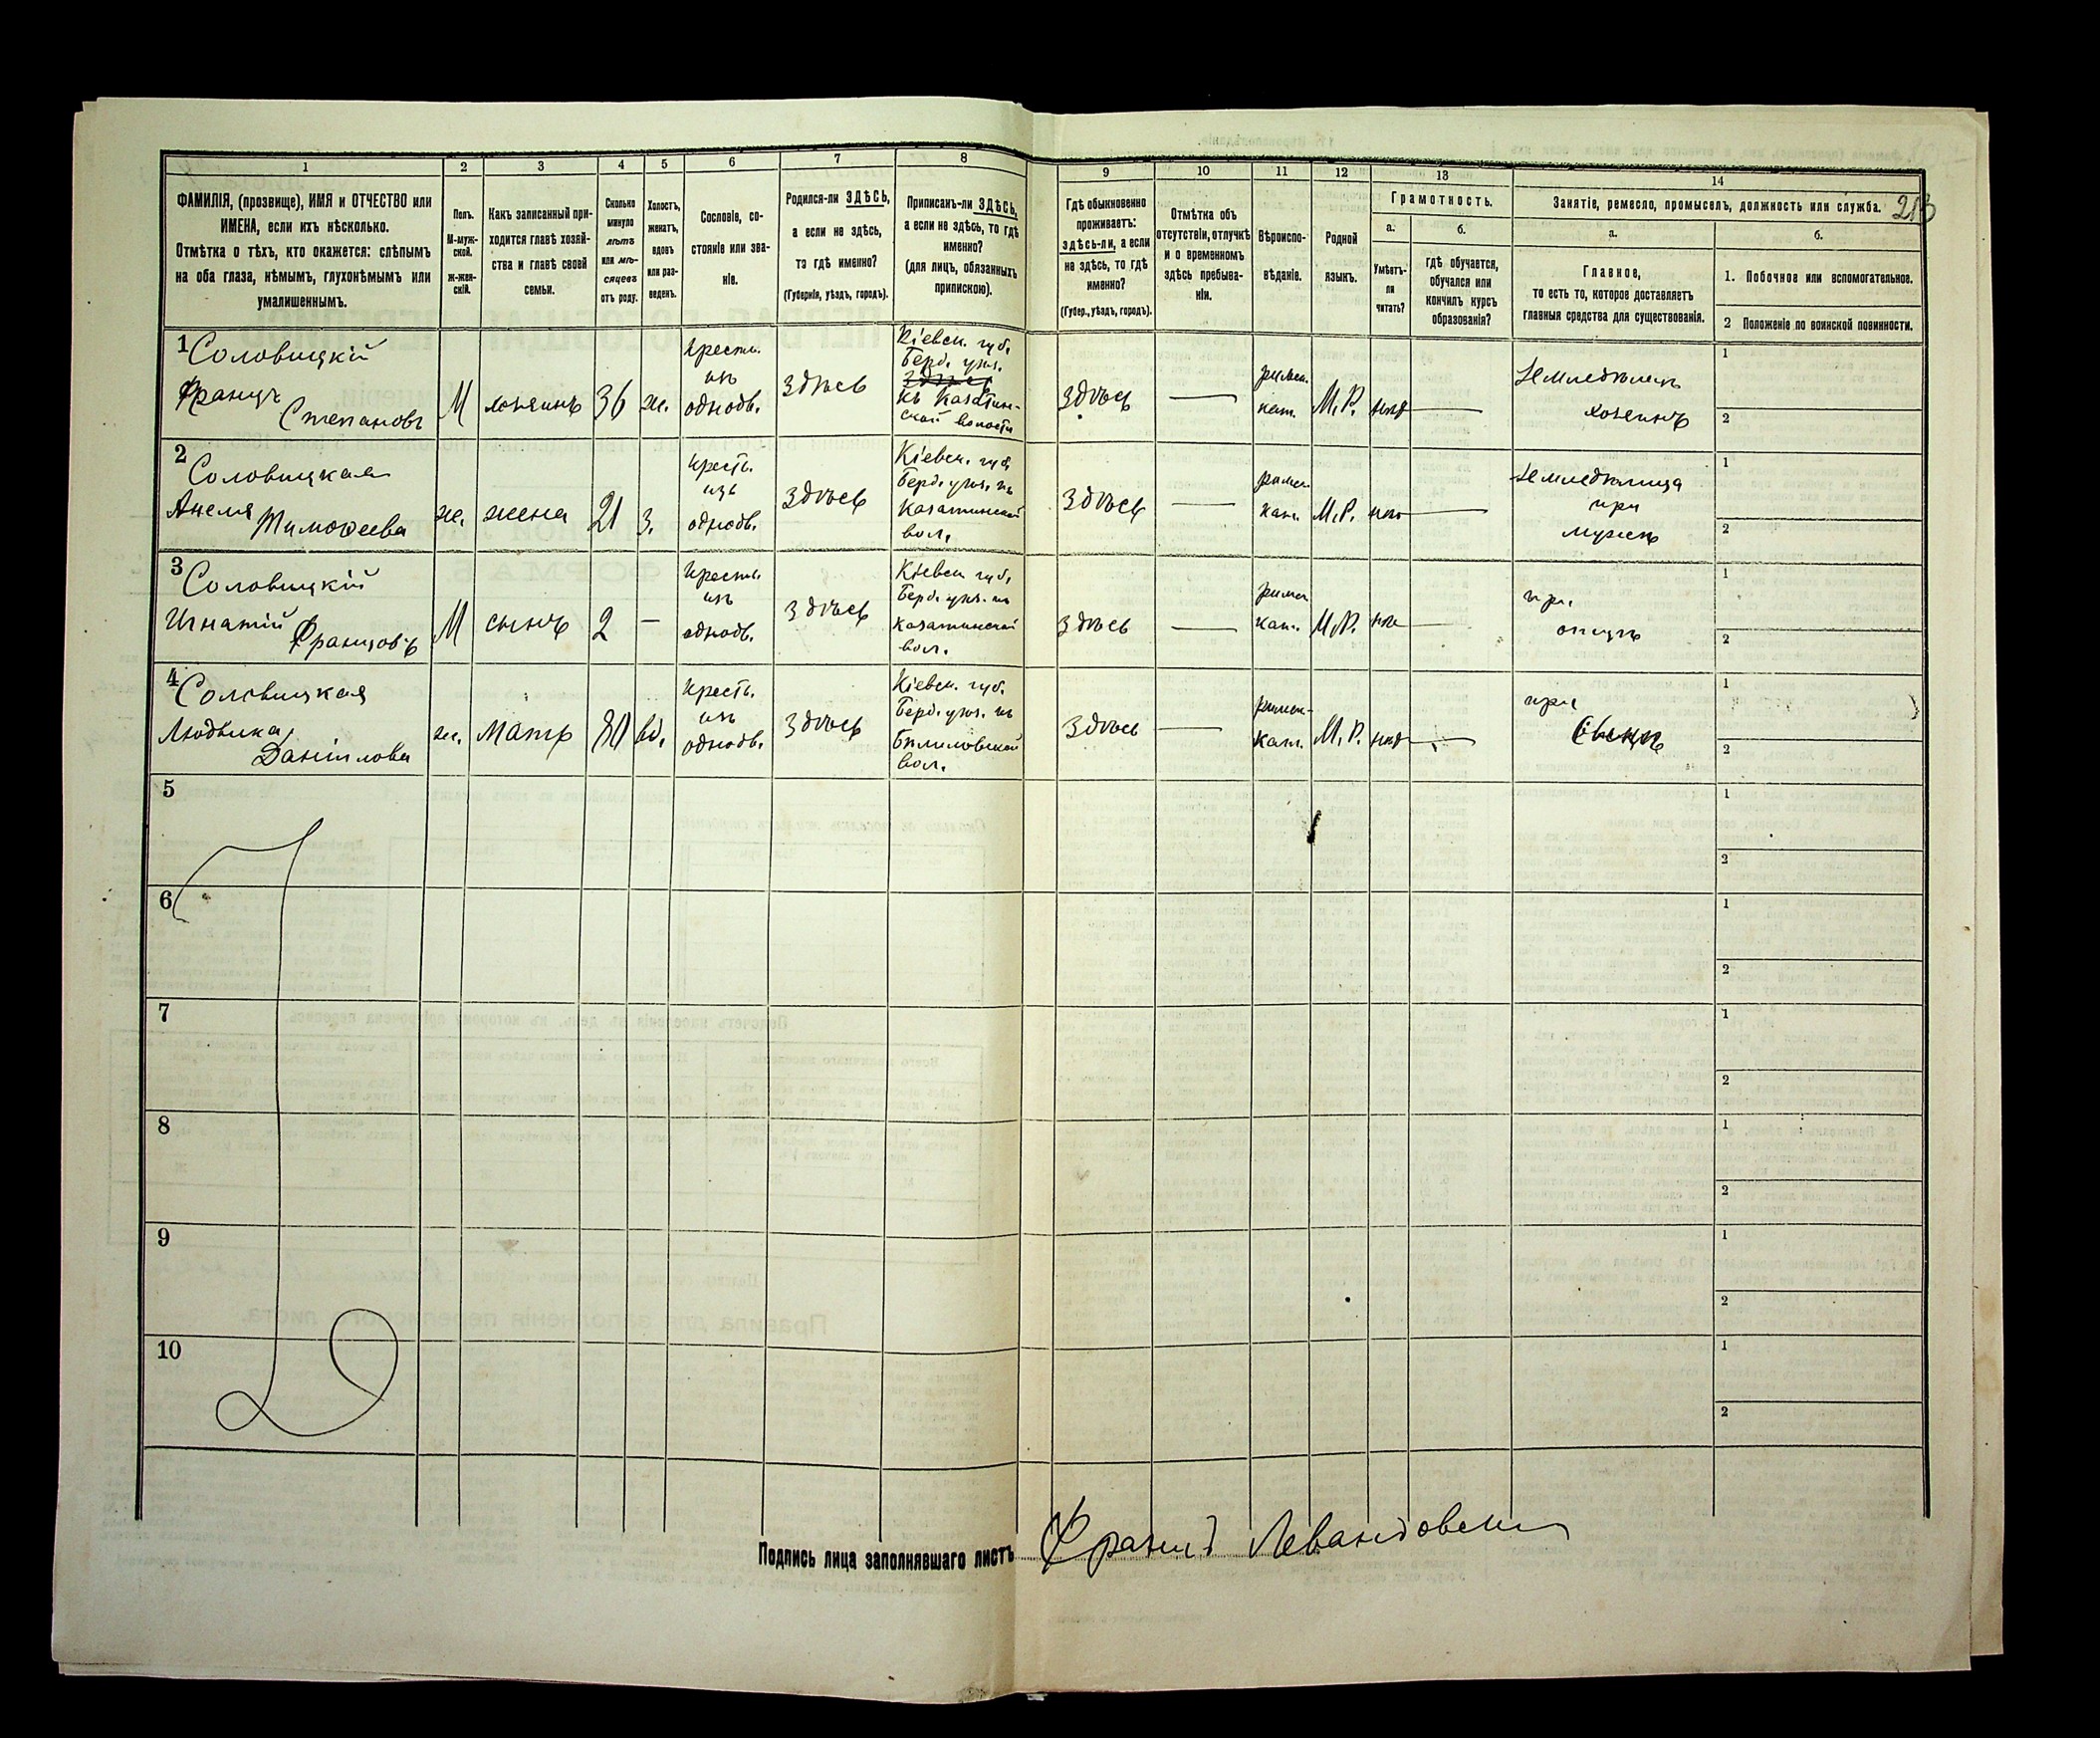 1 2 3 4 5 6 7 8 9 10 11 12 13 14
213
ФАМИЛІЯ, (прозвище), ИМЯ и ОТЧЕСТВО или
ИМЕНА, если ихъ нѣсколько.
Отмѣтка о тѣхъ, кто окажется: слѣпымъ
на оба глаза, нѣмымъ, глухонѣмымъ или
умалишеннымъ.
Полъ.
М-муж-
ской.
ж-жен-
скій.
Какъ записанный при-
ходится главѣ хозяй-
ства и главѣ своей
семьи.
Сколько
минуло
лѣтъ
или мѣ-
сяцевъ
отъ роду.
Холостъ,
женатъ,
вдовъ
или раз-
веденъ.
Сословіе, со-
стояніе или зва-
ніе.
Родился-ли ЗДѢСЬ,
а если не здѣсь,
то гдѣ именно?
(Губернія, уѣздъ, городъ).
Приписанъ-ли ЗДѢСЬ,
а если не здѣсь, то гдѣ
именно?
(для лицъ, обязанныхъ
припискою).
Гдѣ обыкновенно
проживаетъ:
здѣсь-ли, а если
не здѣсь, то гдѣ
именно?
(Губер., уѣздъ, городъ).
Отмѣтка объ
отсутствіи, отлучкѣ
и о временномъ
здѣсь пребыва-
ніи.
Вѣроиспо-
вѣданіе.
Родной
языкъ.
Грамотность.
а.
Умѣетъ-
ли
читать?
б.
Гдѣ обучается,
обучался или
кончилъ курсъ
образованія?
Занятіе, ремесло, промыселъ, должность или служба.
а.
Главное,
то есть то, которое доставляетъ
главныя средства для существованія.
б.
1. Побочное или вспомогательное.
2 Положеніе по воинской повинности.
1 Соловицкій
Францъ
Степановъ
М
хозяинъ
36
ж.
Крестьн.
изъ
однодв.
Здѣсь
Кіевск. губ.
Берд. уѣз.
Здѣсь
къ Казатин-
ской волости
Здѣсь
—
римск.
кат.
М.Р.
нѣт
—
Земледѣлецъ
хозяинъ
1
2
2 Соловицкая
Анеля
Тимофеева
ж.
жена
21
з.
Кресть.
изъ
однодв.
Здѣсь
Кіевск. губ.
Берд. уѣз. къ
Казатинской
вол.
Здѣсь
—
римск.
кат.
М.Р.
нѣт
—
Земледѣлица
при
мужѣ
1
2
3 Соловицкій
Игнатій
Францовъ
М
сынъ
2
—
Крестьн.
изъ
однодв.
Здѣсь
Кіевск губ.
Берд. уѣз. къ
Казатинской
вол.
Здѣсь
—
римск
кат.
М.Р.
нѣт
—
при
отцѣ
1
2
4 Соловицкая
Людвика
Даніилова
ж.
мать
80
вд.
Кресть.
изъ
однодв.
Здѣсь
Кіевск. губ.
Берд. уѣз. къ
Бѣлиловской
вол.
Здѣсь
—
римск-
кат.
М.Р.
нѣт
—
при
Сынѣ
1
2
5
1
2
6
1
2
7
1
2
8
1
2
9
1
2
10
1
2
Подпись лица заполнявшаго листъ Францъ Левандовски